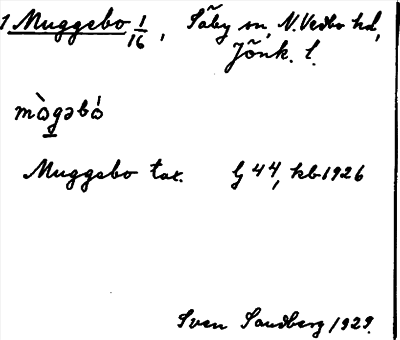 1 Muggebo 1/16, Säby sn, N. Vedbo hd,
Jönk. l.
mògəbó
Muggebo tax. lj 44, kb 1926
Sven Sandberg 1929.